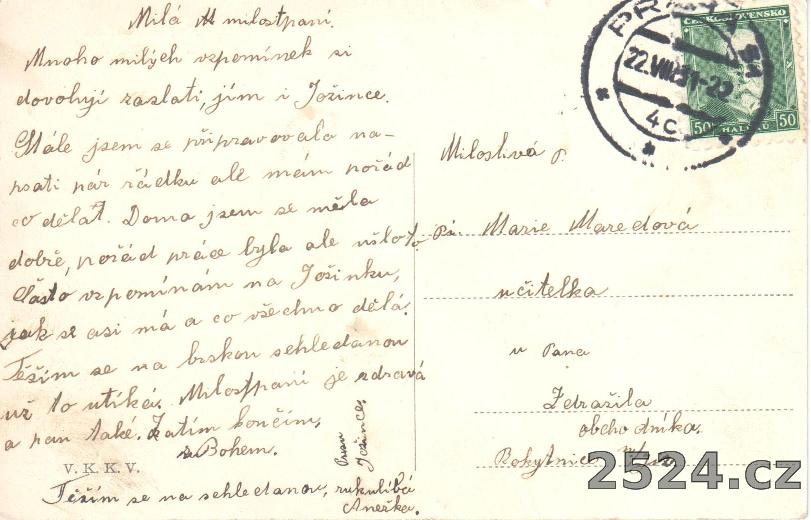 Milá M milostpaní.
Mnoho milých vzpomínek si
dovoluji zaslati, jím i Jožince.
Stále jsem se připravovala na-
psati pár řádku ale mám pořád
co dělat. Doma jsem se měla
dobře, pořád práce byla ale ušlo to.
Často vzpomínám na Jožinku,
jak se asi má a co všechno dělá.
Těším se na brskou sehledanou
už to utíká. Milostpaní je zdravá
a pan také. Zatím končím,
s Bohem.
Jožince.
V. K. K. V.
Těším se na sehledanou, rukulíbá
Anežka.
PRAHA
22.VIII.31-22
4c
ČESKOSLOVENSKO
50 HALÉŘŮ 50
Milostivá p.
Pí. Marie Maredová
učitelka
u Pana
Zdražila
obchodníka.
Rokytnice
2524.cz